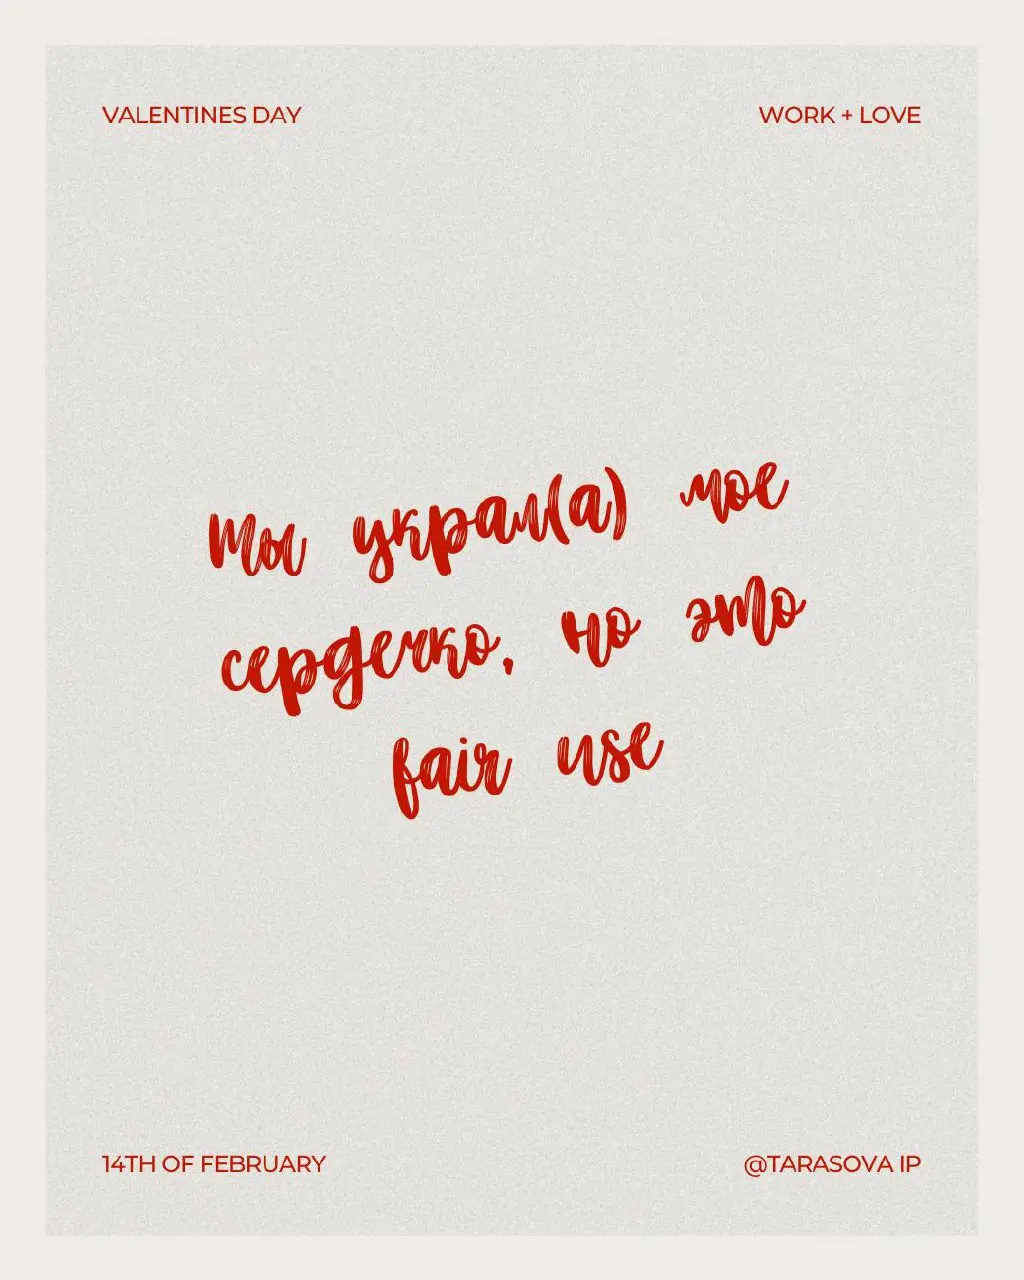 VALENTINES DAY
WORK + LOVE
ты украл(а) мое
сердечко, но это
fair use
14TH OF FEBRUARY
@TARASOVA IP